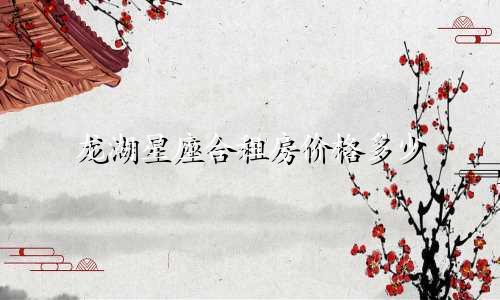 龙湖星座合租房价格多少